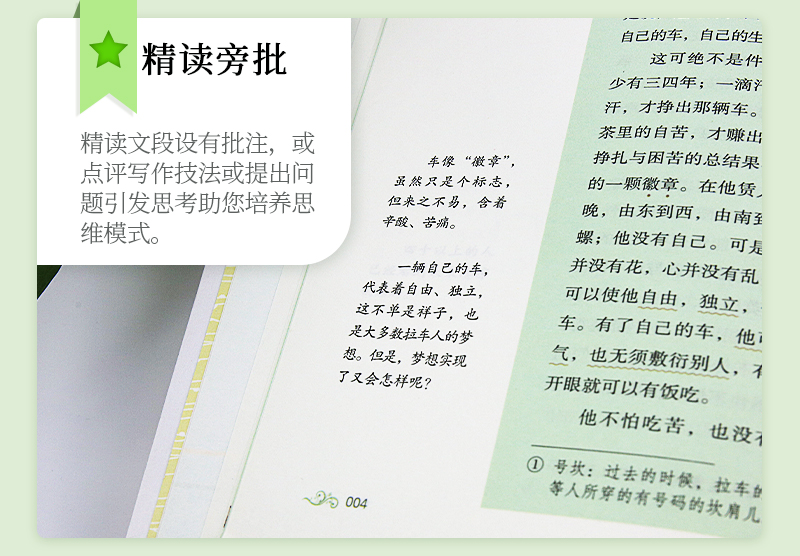 精读旁批
精读文段设有批注，或
点评写作技法或提出问
题引发思考助您培养思
维模式。
车像“徽章”，
虽然只是个标志，
但来之不易，含着
辛酸、苦痛。
一辆自己的车，
代表着自由、独立，
这不单是祥子，也
是大多数拉车人的梦
想。但是，梦想实现
了又会怎样呢？
004
自己的车，自己的生
这可绝不是件
少有三四年；一滴汗
汗，才挣出那辆车。
茶里的自苦，才赚出
挣扎与困苦的总结果
的一颗徽章。在他赁
晚，由东到西，由南到
螺；他没有自己。可是
并没有花，心并没有乱
可以使他自由，独立，
车。有了自己的车，他可
气，也无须敷衍别人，有
开眼就可以有饭吃。
他不怕吃苦，也没有
① 号坎：过去的时候，拉车的
等人所穿的有号码的坎肩儿